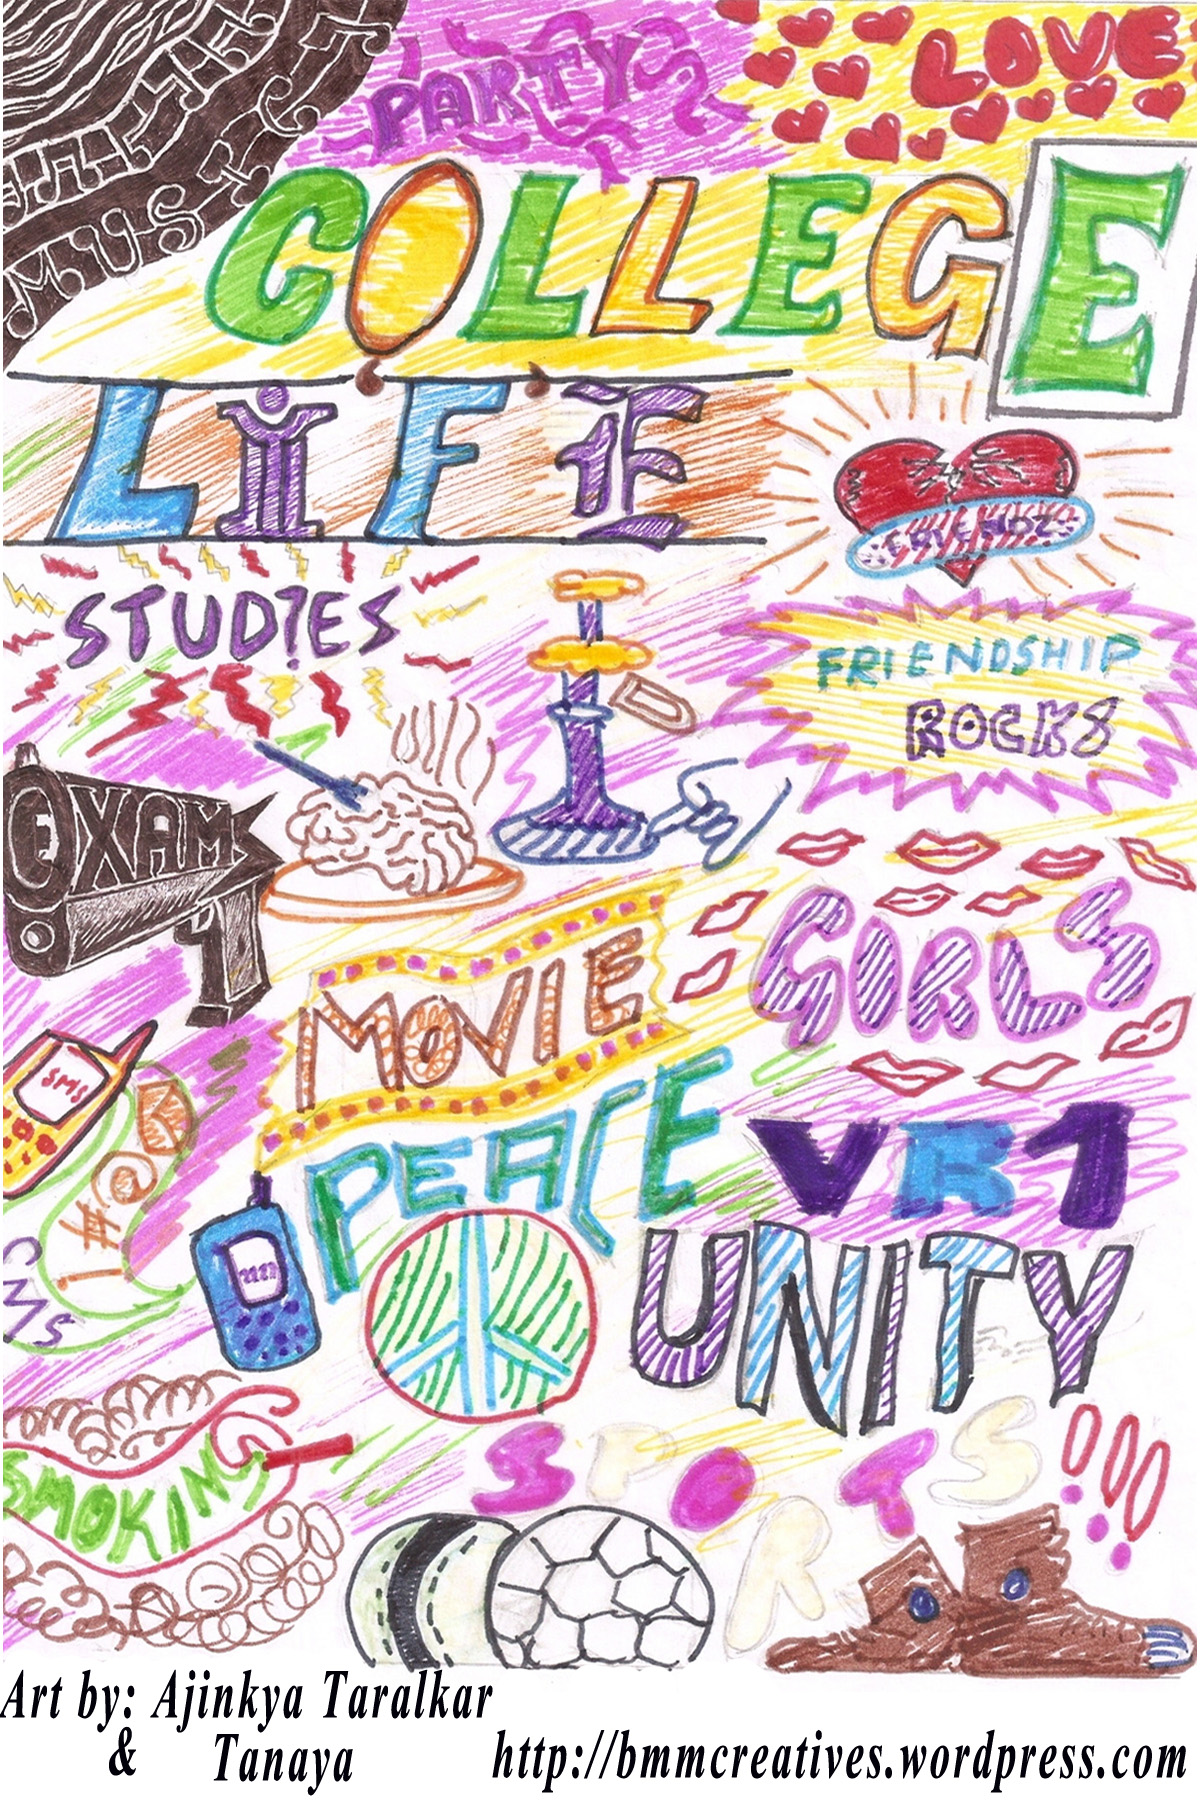 MUSIC
PARTY
LOVE
COLLEGE
LIFE
STUD?ES
FRIENDSHIP
ROCKS
EXAM
GIRLS
MOVIE
SMS
!#@
PEACE
VR1
UNITY
SMS
SMOKING
SPORTS!!!
Art by: Ajinkya Taralkar
& Tanaya
http://bmmcreatives.wordpress.com